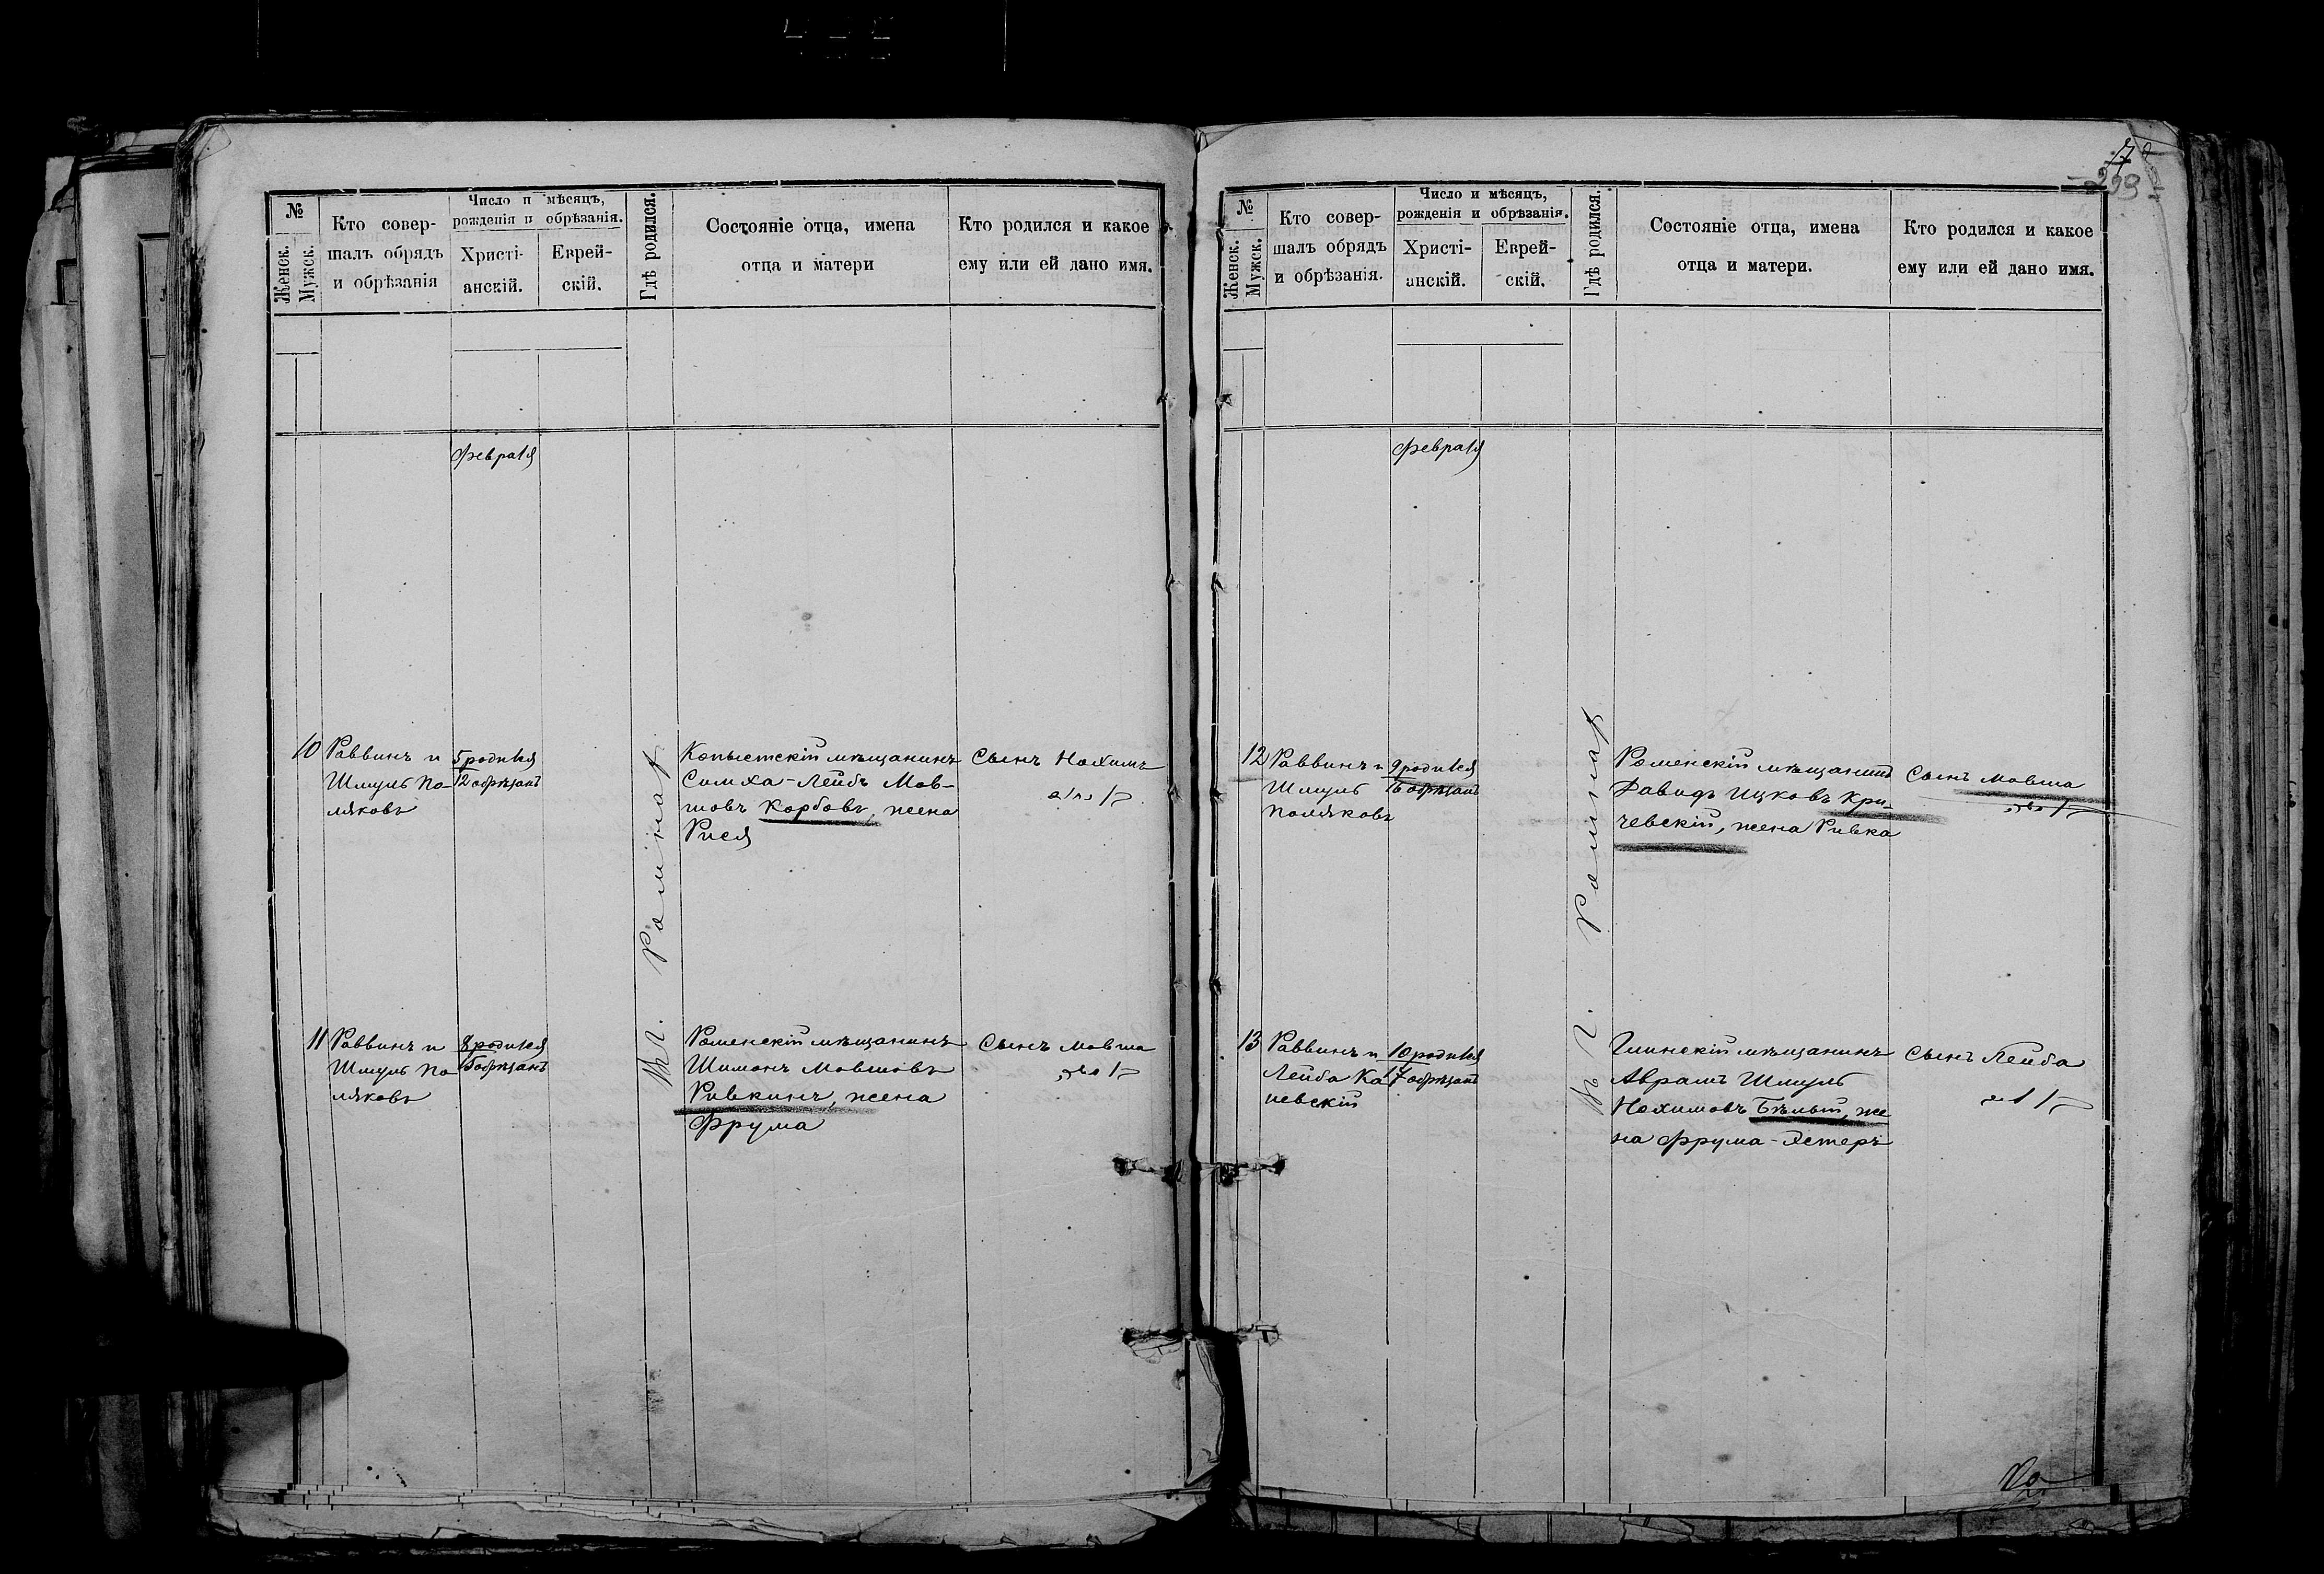 №
Женск.
Мужск.
Кто совер-
шалъ обрядъ
и обрѣзанія
Число и мѣсяцъ,
рожденія и обрѣзанія.
Христі-
анскій.
Еврей-
скій.
Гдѣ родился.
Состояніе отца, имена
отца и матери
Кто родился и какое
ему или ей дано имя.
Февраля
10
Раввинъ и
Шмуль По-
ляковъ
5 родился
12 обрѣзанъ
Въ г. Ромнах
Копыстскій мѣщанинъ
Симха-Лейбъ Мов-
шовъ Корбовъ, жена
Рися
Сынъ Нохимъ
11
Раввинъ и
Шмуль По
ляковъ
8 родился
15 обрѣзанъ
Роменскій мѣщанинъ
Шимонъ Мовшовъ
Ривкинъ, жена
Фрума
Сынъ Мовша
בן משה
№
Женск.
Мужск.
Кто совер-
шалъ обрядъ
и обрѣзанія.
Число и мѣсяцъ,
рожденія и обрѣзанія.
Христі-
анскій.
Еврей-
скій.
Гдѣ родился.
Состояніе отца, имена
отца и матери.
Кто родился и какое
ему или ей дано имя.
Февраля
12
Раввинъ и
Шмуль
Поляковъ
9 родился
16 обрѣзанъ
Въ г. Ромнах
Роменскій мѣщанинъ
Давидъ Ицковъ Кри-
чевскій, жена Ривка
Сынъ Мовша
בן משה
13
Раввинъ и
Лейба Ка
невскій
10 родился
17 обрѣзанъ
Глинскій мѣщанинъ
Аврамъ Шмуль
Нохимовъ Бѣлый, же
на Фрума-Эстеръ
Сынъ Лейба